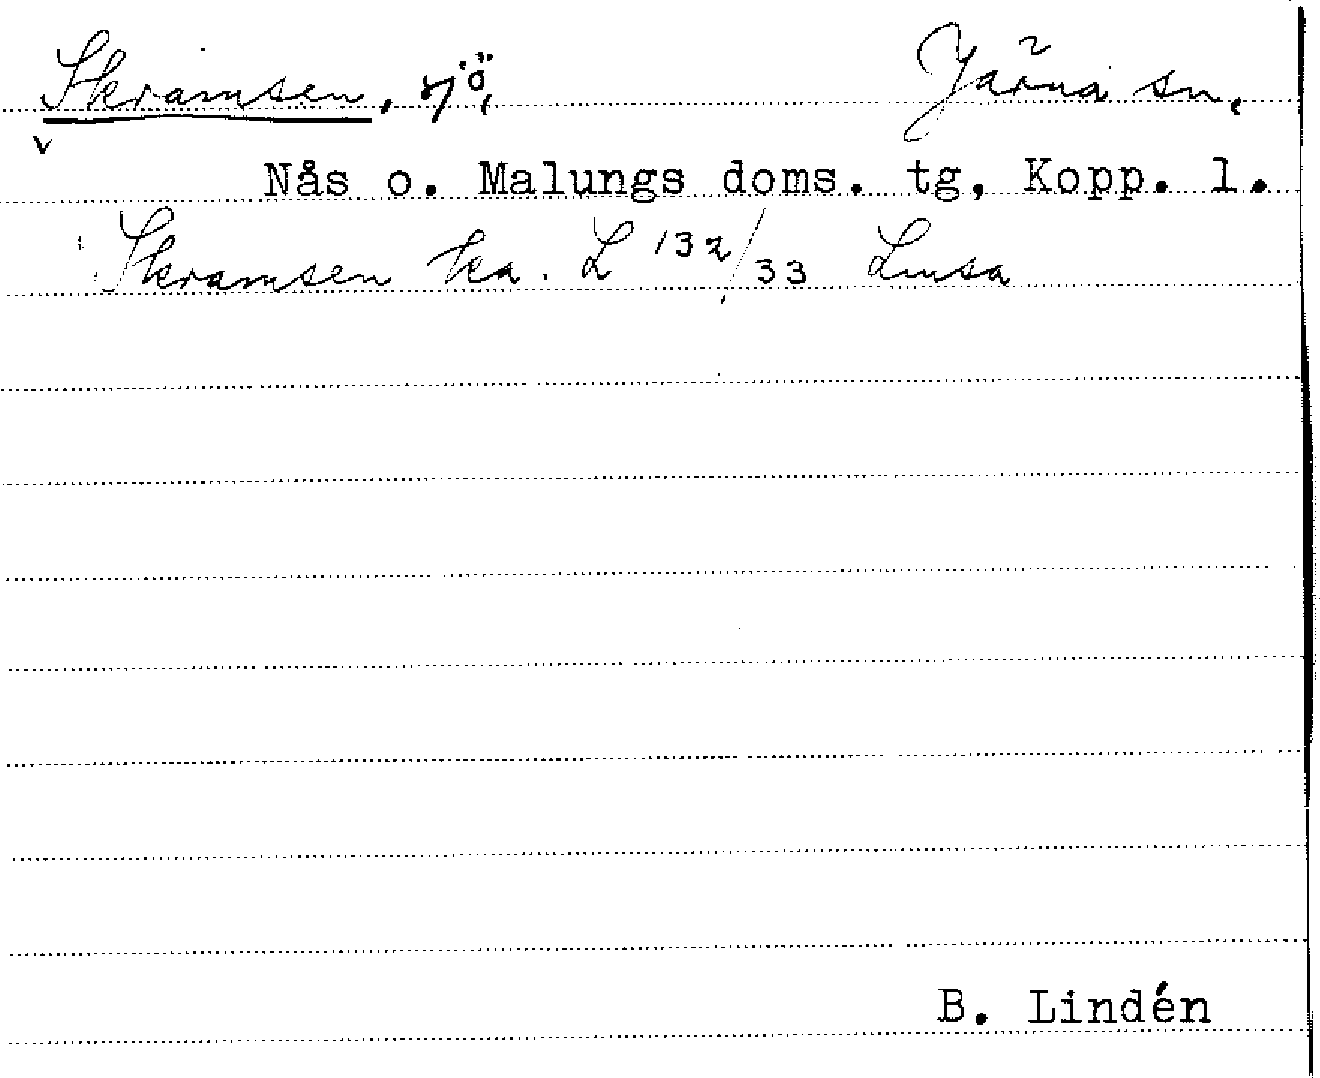 Skramsen, sjö, Järna sn.
v
Nås o. Malungs doms. tg, Kopp. l.
Skramsen ka. L 132/33 Limsa
B. Lindén